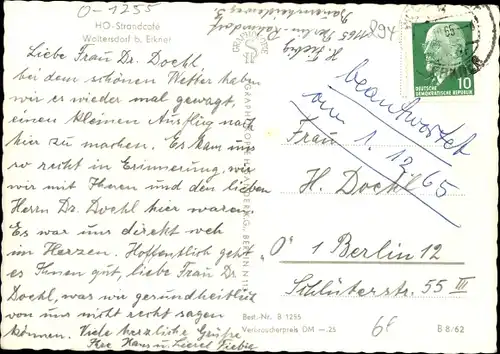 O-1255
HO-Strandcafé
Woltersdorf b. Erkner
Liebe Frau Dr. Dochl,
bei dem schönen Wetter haben
wir es wieder mal gewagt,
einen kleinen Ausflug nach
hier zu machen. Es kam uns
so recht in Erinnerung, wie
wir mit Ihnen und den lieben
Herrn Dr. Dochl hier waren.
Es war uns direkt weh
im Herzen. Hoffentlich geht
es Ihnen gut, liebe Frau Dr.
Dochl, was wir gesundheitlich
von uns nicht recht sagen
können. Viele herzliche Grüße
Ihre Hans u. Liesel Fiebig
H. Fiebig
1165 Berlin-Rahnsdorf
894
65
DEUTSCHE
DEMOKRATISCHE REPUBLIK
10
beantwortet
am 1. 12. 65
Frau
H. Dochl
"O" 1 Berlin 12
Schlüterstr. 55 III
Best.-Nr. B 1255
Verkaucherpreis DM —.25
6F
B 8/62